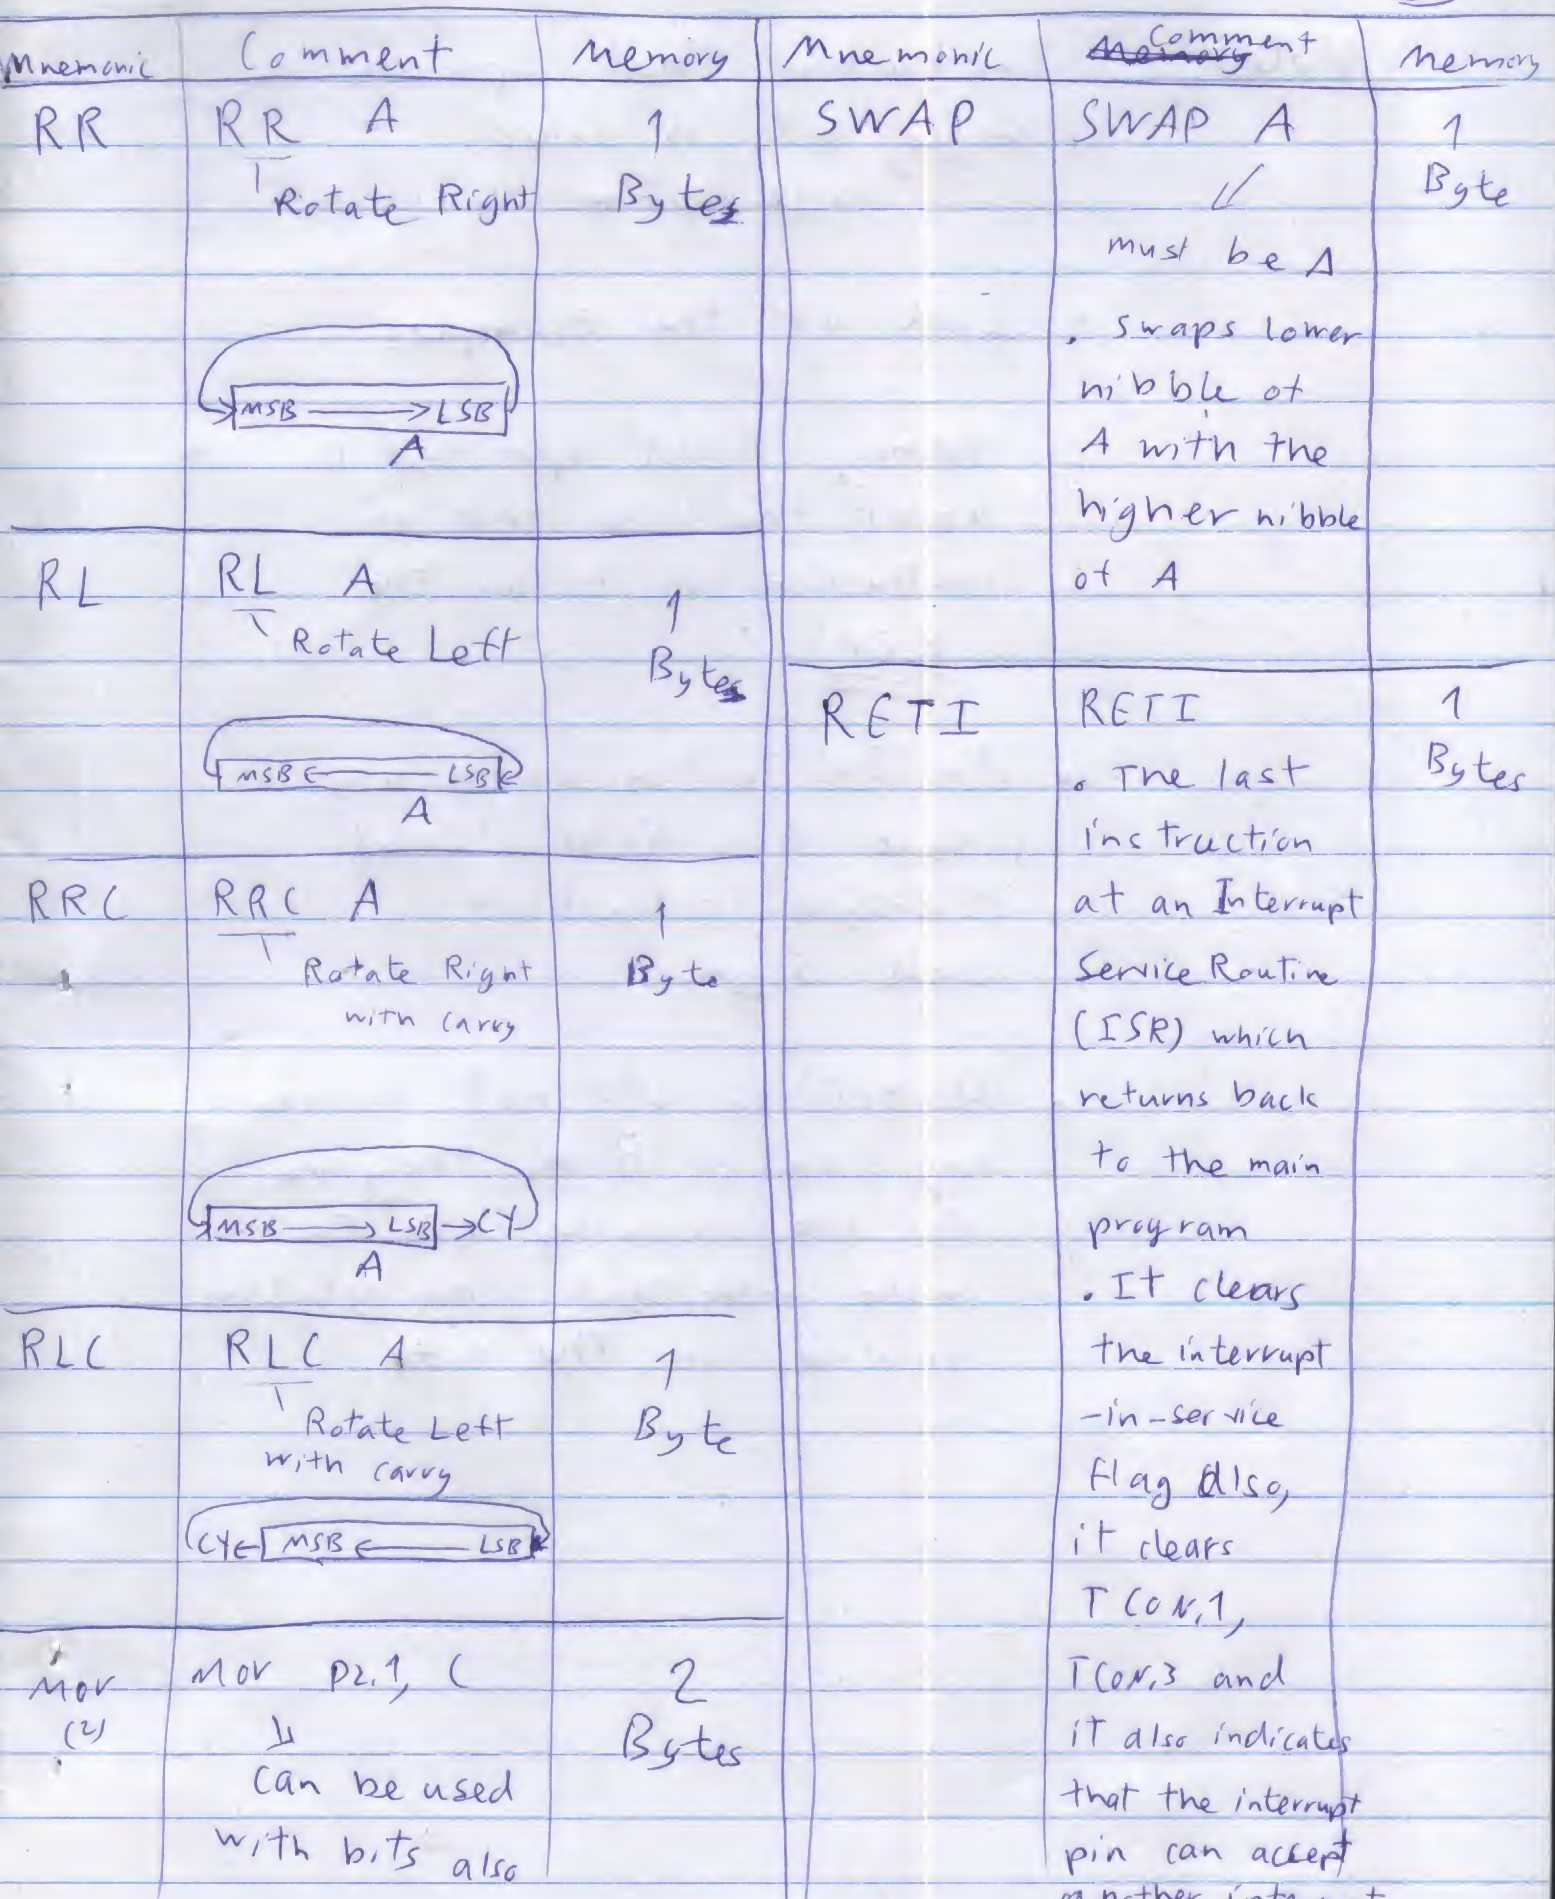 Mnemonic Comment Memory
RR RR A 1
Rotate Right Bytes
MSB LSB
A
RL RL A 1
Rotate Left Bytes
MSB LSB
A
RRC RRC A 1
Rotate Right Byte
with carry
MSB LSB CY
A
RLC RLC A 1
Rotate Left Byte
with carry
CY MSB LSB
MOV MOV P2.1, C 2
(2) Bytes
Can be used
with bits also
Mnemonic Memory Comment Memory
SWAP SWAP A 1
Byte
must be A
. Swaps lower
nibble of
A with the
higher nibble
of A
RETI RETI 1
. The last Bytes
instruction
at an Interrupt
Service Routine
(ISR) which
returns back
to the main
program
. It clears
the interrupt
-in-service
flag also,
it clears
TCON.1,
TCON.3 and
it also indicates
that the interrupt
pin can accept
another interrupt